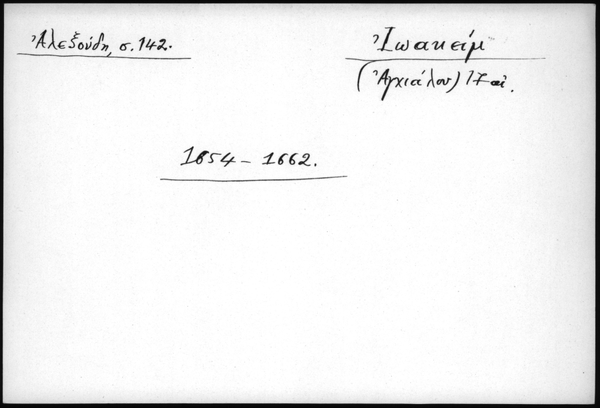 Ἀλεξούδη, σ. 142.
Ἰωακείμ
(Ἀγχιάλου) 17 αἰ.
1654 – 1662.